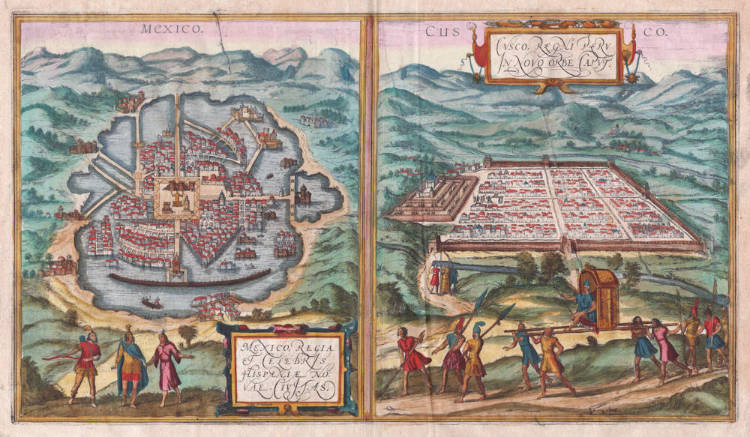 MEXICO.
CUS CO.
CVSCO, REGNI PERV
IN NOVO ORBE CAPVT.
MEXICO, REGIA
ET CELEBRIS
HISPANIÆ NO
VAE CIVITAS.